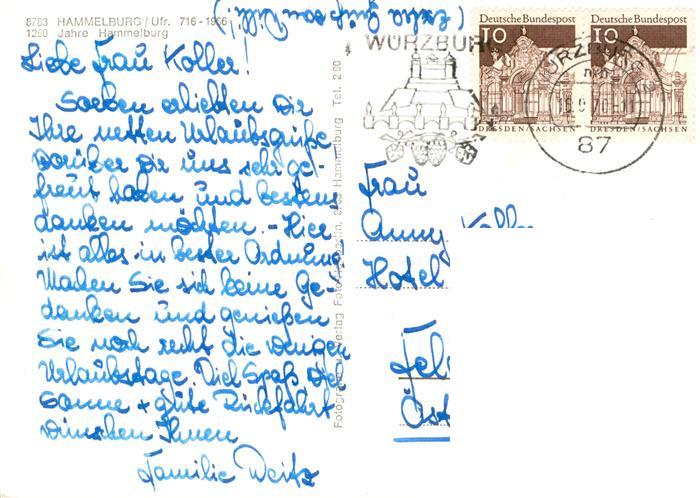 8783 HAMMELBURG/Ufr. 716-1966
1250 Jahre Hammelburg
(Extra Gruß von Willi!)
Liebe Frau Koller!
Soeben erhielten wir
Ihre netten Urlaubsgrüße
worüber wir uns sehr ge-
freut haben und bestens
danken möchten. - Hier
ist alles in bester Ordnung
Machen Sie sich keine Ge-
danken und genießen
Sie noch recht die wenigen
Urlaubstage. Viel Spaß
Sonne + gute Rückfahrt
wünschen Ihnen
Familie
Hammelburg Tel. 290
WÜRZBURG
Deutsche Bundespost
10
DRESDEN/SACHSEN
Deutsche Bundespost
10
DRESDEN/SACHSEN
WÜRZBURG
87
Frau
Anny Koller
Hotel
Fel
Öst